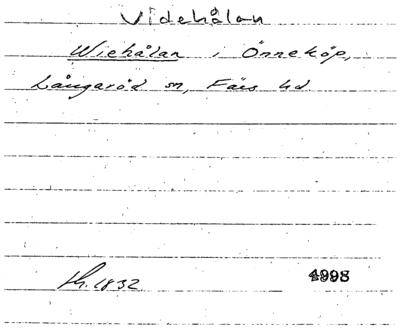 Videhålan
Wiehålan i Önneköp,
Långaröd sn, Färs hd
1832 4998